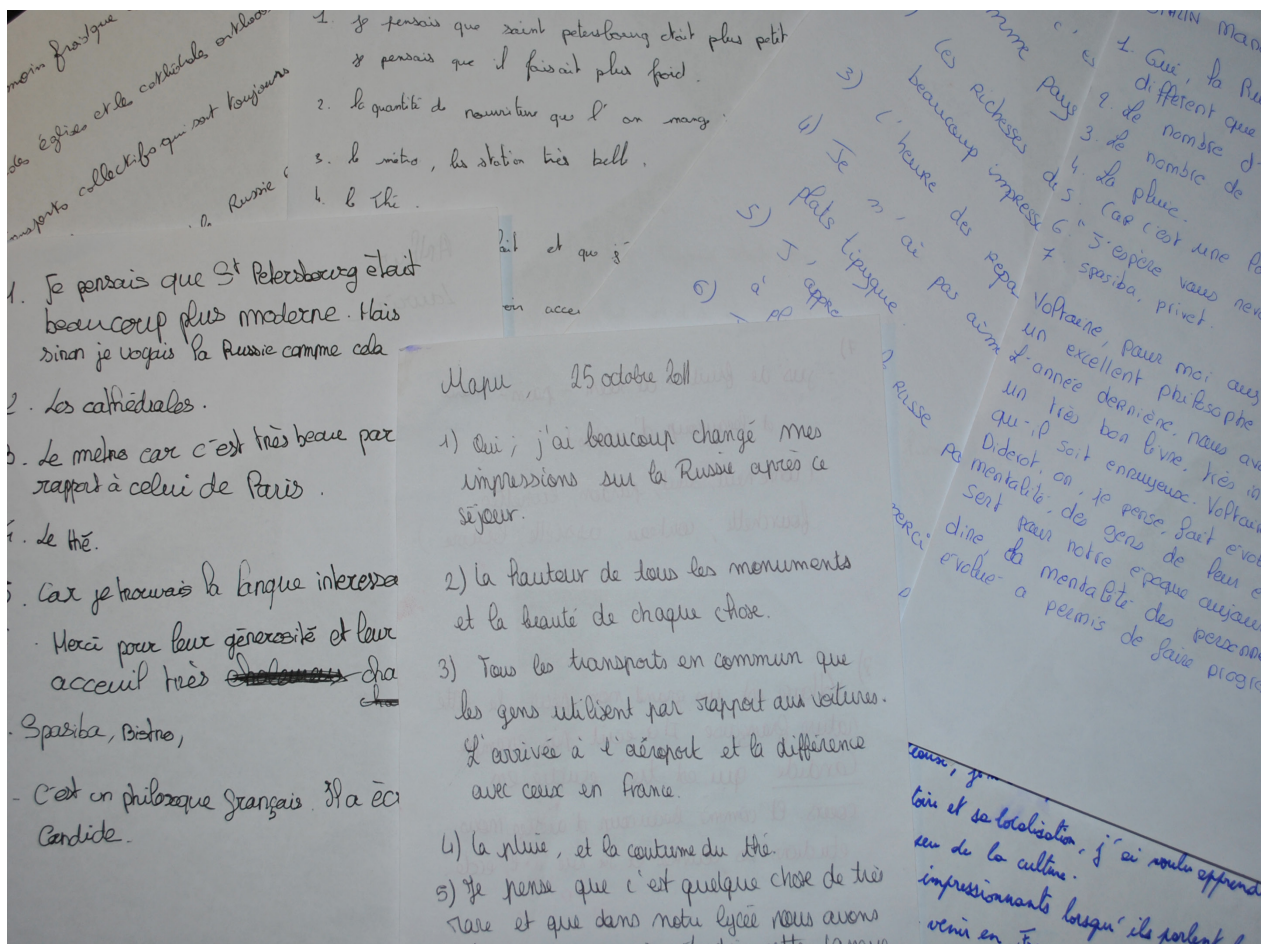 moin frasque
des églises et les cathédrales orthod
transports collectifs qui sont toujours
Russie
1. Je pensais que saint petersbourg était plus petit
je pensais que il faisait plus froid.
2. la quantité de nourriture que l'on mang
3. le métro, les station très bell.
4. le thé.
ait et que j'
on accei
1. Je pensais que St Petersbourg était
beaucoup plus moderne. Mais
sinon je voyais la Russie comme cela
2. Les cathédrales.
3. Le metro car c'est très beau par
rapport à celui de Paris.
4. Le thé.
5. Car je trouvais la langue interessa
Merci pour leur générosité et leur
acceuil très cha
Spasiba, Bistro,
- C'est un philosoque français. Il a écr
Candide.
Mapu, 25 octobre 2011
1) Oui, j'ai beaucoup changé mes
impressions sur la Russie après ce
séjour.
2) La hauteur de tous les monuments
et la beauté de chaque chose.
3) Tous les transports en commun que
les gens utilisent par rapport aux voitures.
L'arrivée à l'aéroport et la différence
avec ceux en France.
4) La pluie, et la coutume du thé.
5) Je pense que c'est quelque chose de très
rare et que dans notre lycée nous avons
c'es
pays
les richesses des
beaucoup impress
3) L'heure des repa
4) Je n'ai pas aimé
plats tipyque
5) J'appre
6) à
russe
merci
1. Oui, la Ru
différent que
2. Le nombre d'
3. Le nombre de
4. La pluie.
5. Car c'est une la
6. "J'espère vous rev
7. spasiba, privet.
Voltaire, pour moi aus
un excellent philosophe
L'année dernière, nous avo
un très bon livre, très in
qu'il soit ennuyeux. Voltair
Diderot, on, je pense, fait évol
mentalité des gens de leur é
sert pour notre époque aujour
dire, la mentalité des personn
évolué a permis de faire progre
toire et sa localisation, j'ai voulu apprend
seu de la culture.
impressionnants lorsqu'ils parlent
venir en F